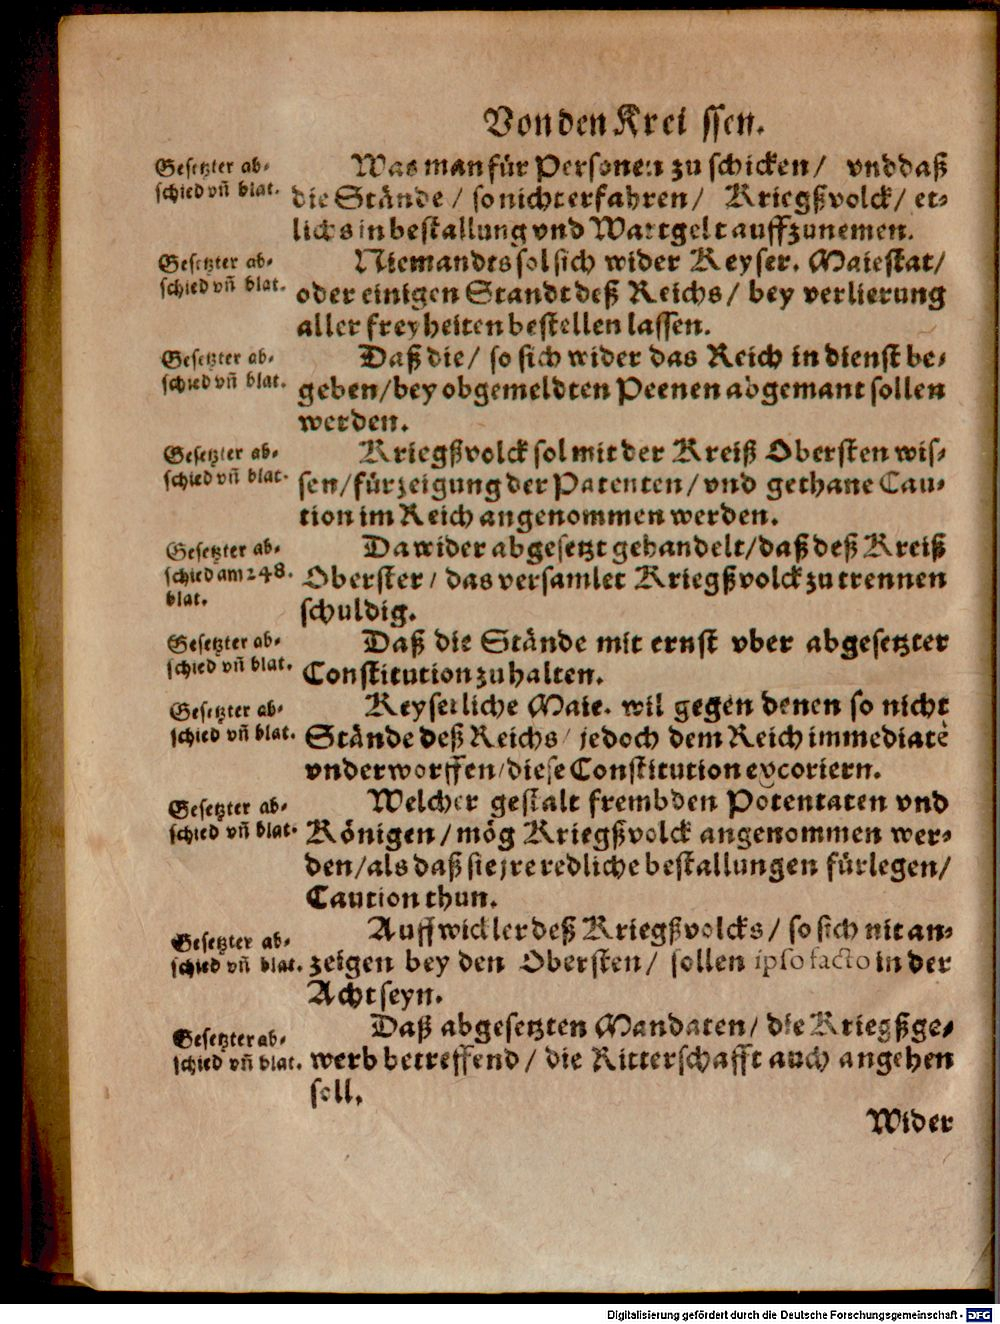 Von den Kreissen.
Gesetzter ab-
schied vñ blat.
Was man für Personen zu schicken / vnd daß
die Stände / so nicht erfahren / Kriegßvolck / et-
lichs in bestallung vnd Wartgelt auffzunemen.
Gesetzter ab-
schied vñ blat.
Niemandts sol sich wider Keyser. Maiestat /
oder einigen Standt deß Reichs / bey verlierung
aller freyheiten bestellen lassen.
Gesetzter ab-
schied vñ blat.
Daß die / so sich wider das Reich in dienst be-
geben / bey obgemeldten Peenen abgemant sollen
werden.
Gesetzter ab-
schied vñ blat.
Kriegßvolck sol mit der Kreiß Obersten wis-
sen / fürzeigung der Patenten / vnd gethane Cau-
tion im Reich angenommen werden.
Gesetzter ab-
schied am 248.
blat.
Da wider abgesetzt gehandelt / daß deß Kreiß
Oberster / das versamlet Kriegßvolck zu trennen
schuldig.
Gesetzter ab-
schied vñ blat.
Daß die Stände mit ernst vber abgesetzter
Constitution zu halten.
Gesetzter ab-
schied vñ blat.
Keyserliche Maie. wil gegen denen so nicht
Stände deß Reichs / jedoch dem Reich immediatè
vnderworffen / diese Constitution expcoriern.
Gesetzter ab-
schied vñ blat.
Welcher gestalt frembden Potentaten vnd
Königen / mög Kriegßvolck angenommen wer-
den / als daß sie jre redliche bestallungen fürlegen /
Caution thun.
Gesetzter ab-
schied vñ blat.
Auffwickler deß Kriegßvolcks / so sich nit an-
zeigen bey den Obersten / sollen ipso facto in der
Acht seyn.
Gesetzter ab-
schied vñ blat.
Daß abgesetzten Mandaten / die Kriegßge-
werb betreffend / die Ritterschafft auch angehen
soll.
Wider
Digitalisierung gefördert durch die Deutsche Forschungsgemeinschaft - DFG